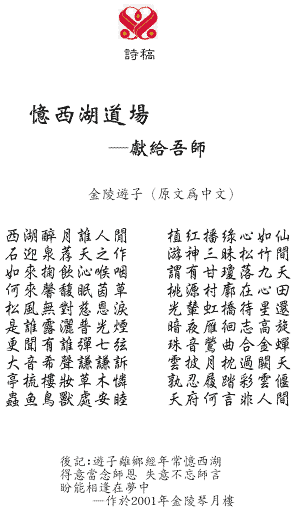 詩稿
憶西湖道場
──獻給吾師
金陵遊子（原文爲中文）
西湖醉月誰人聞
石迎泉荐天之作
如來掬飲沁喉咽
何來馨馥眠茵草
松風無對慈恩淚
是誰露灑普光煙
更聞有聲彈七弦
大音希聲謙謙訴
亭梳樓妝草木憐
蟲魚鳥獸處安睦
植紅播綠心如仙
游神三昧松竹間
謂有甘瓊落九天
桃源村廓在心田
光輦虹橋待志還
暗夜雁徊星高旋
珠音鶯曲亦金蟬
雲披月枕過闕天
孰忍履踏彩雲偃
天府何言非人間
後記:遊子離鄉經年常憶西湖
得意當念師恩 失意不忘師言
盼能相逢在夢中
──作於2001年金陵琴月樓